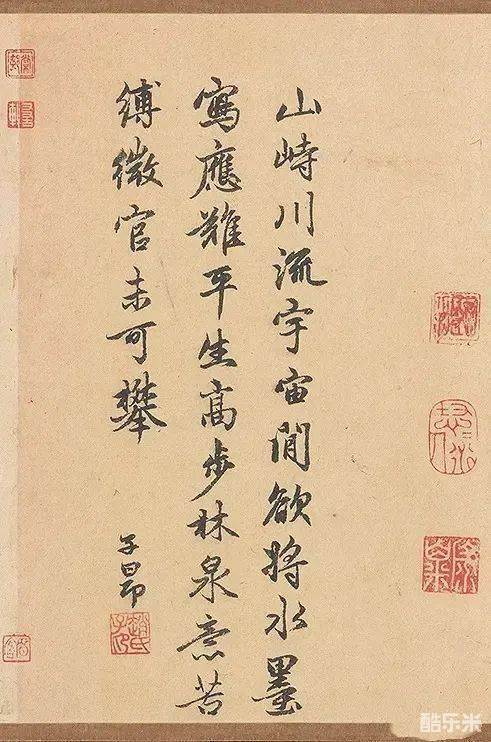 山峙川流宇宙間欲將水墨
寫應難平生高步林泉意苦
縛微官未可攀
子昂
酷乐米